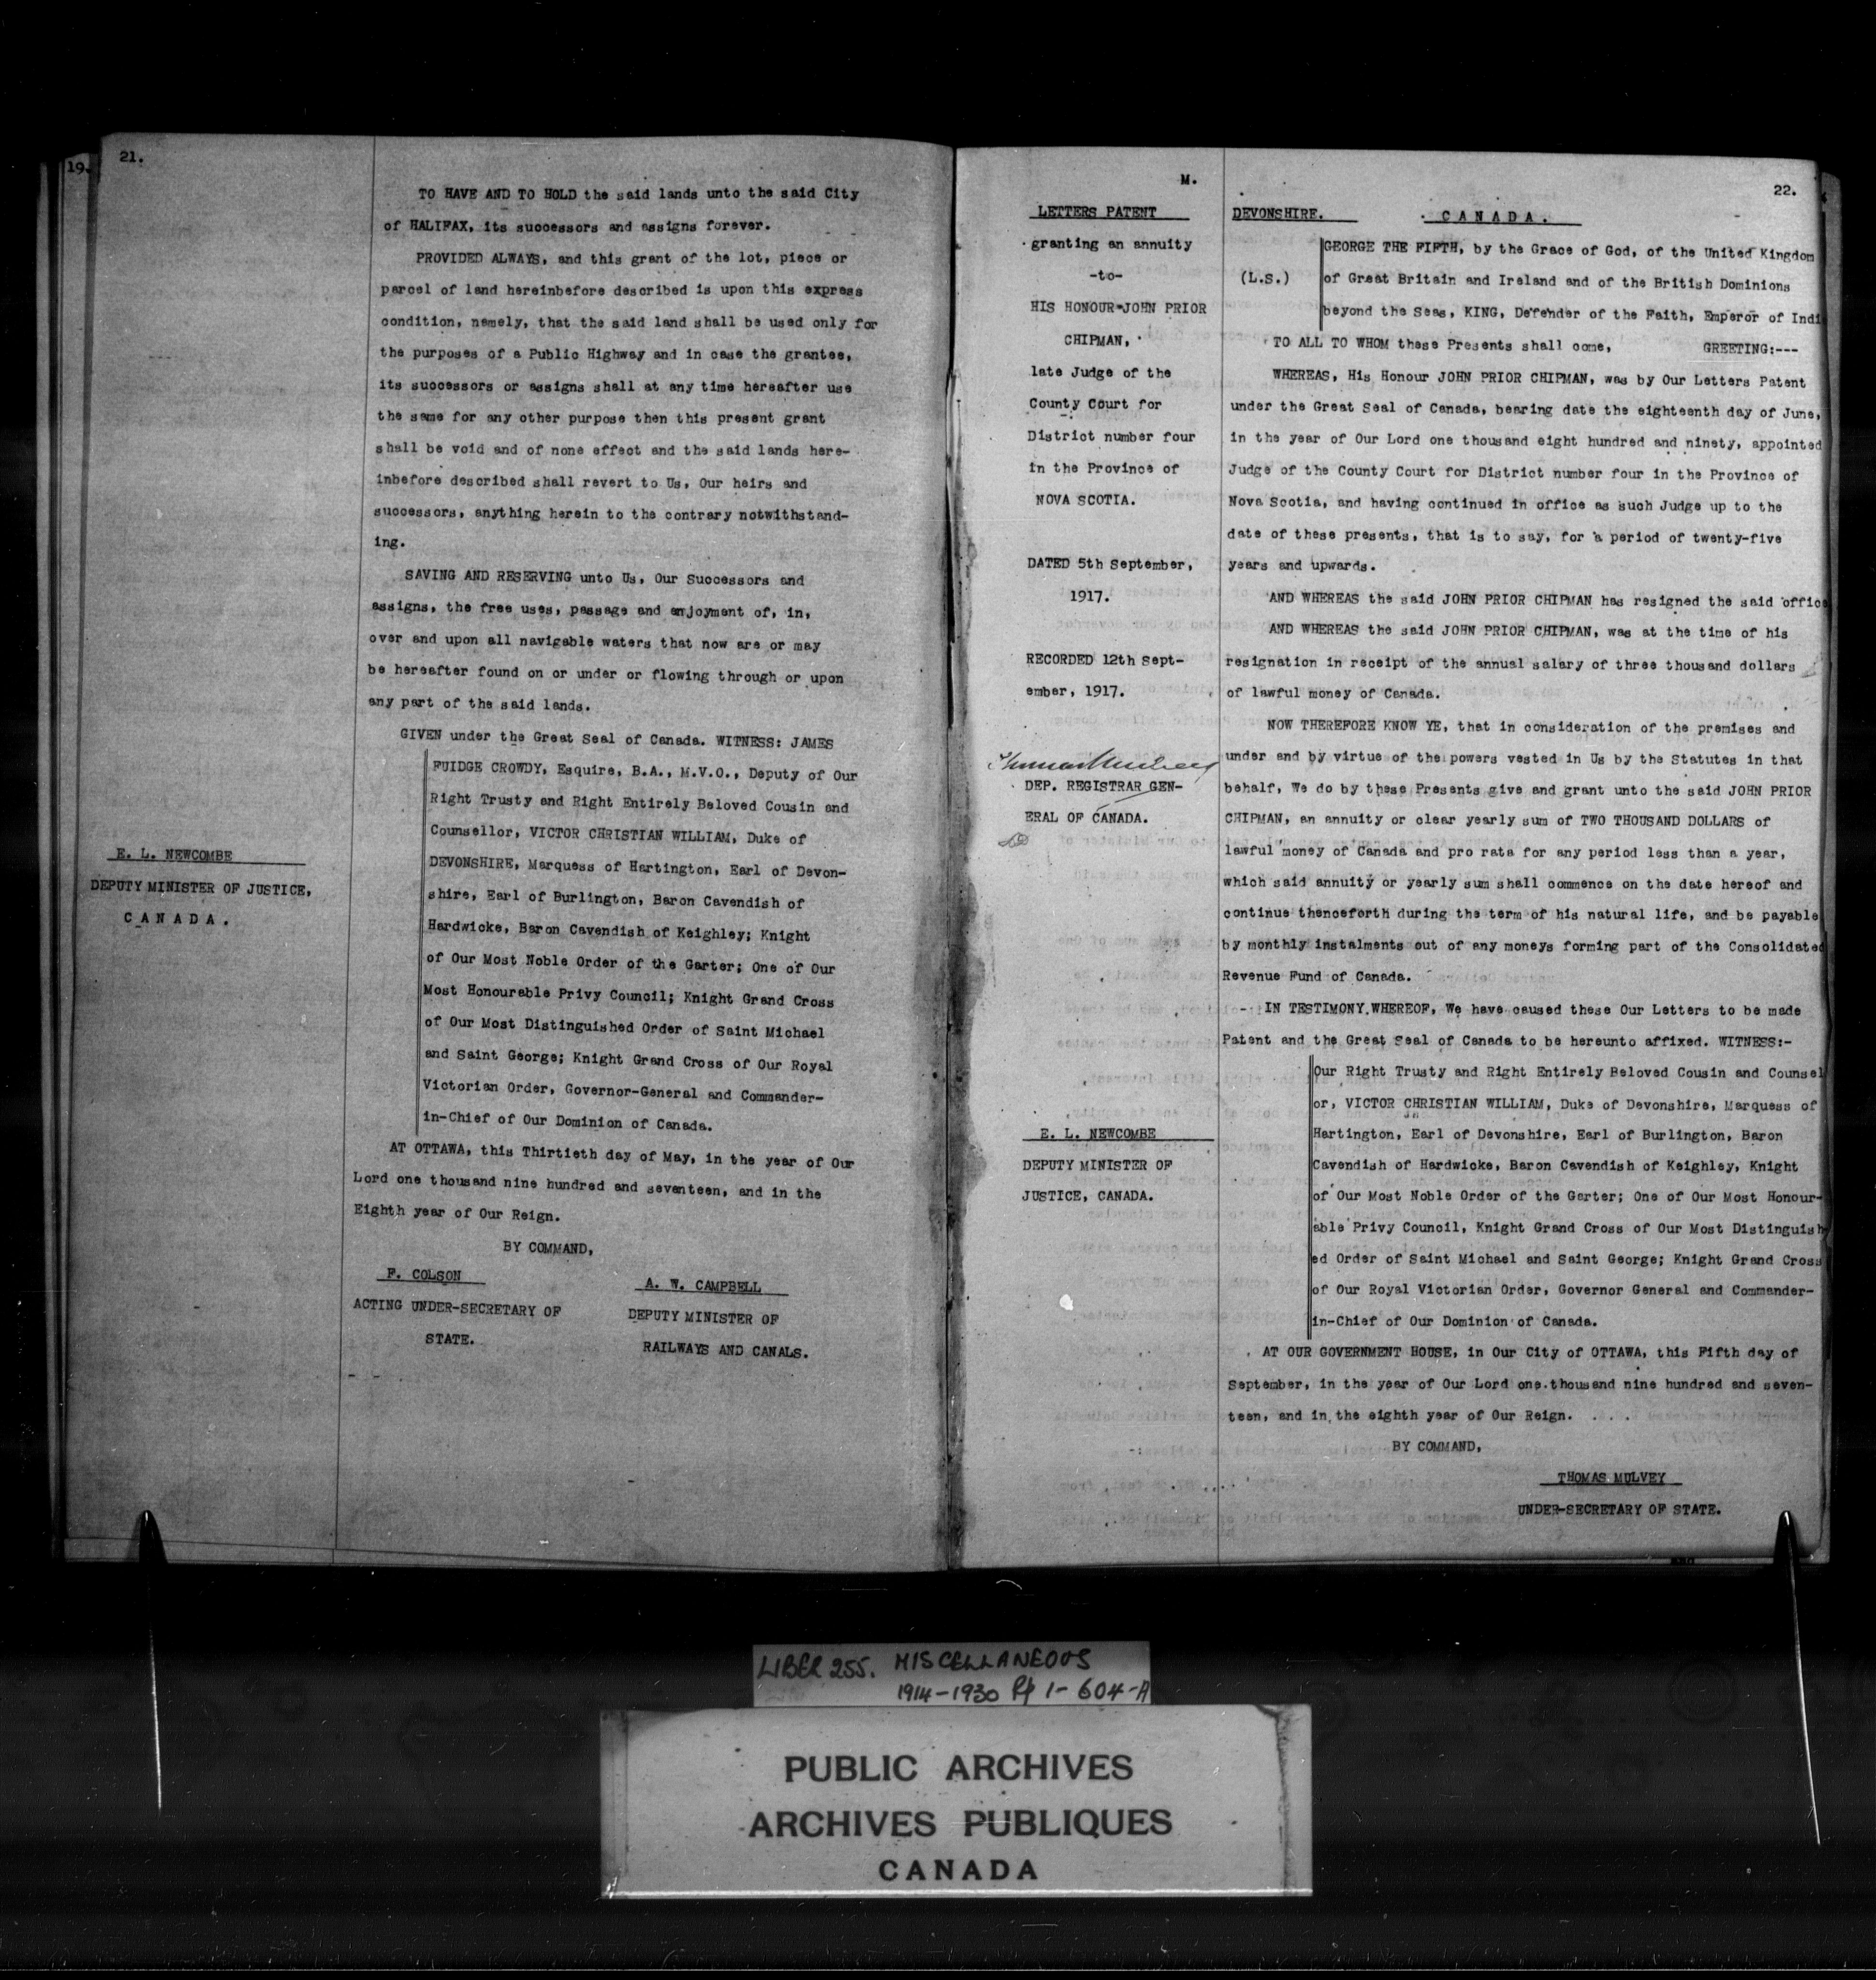 19.
21.
TO HAVE AND TO HOLD the said lands unto the said City
of HALIFAX, its successors and assigns forever.
PROVIDED ALWAYS, and this grant of the lot, piece or
parcel of land hereinbefore described is upon this express
condition, namely, that the said land shall be used only for
the purposes of a Public Highway and in case the grantee,
its successors or assigns shall at any time hereafter use
the same for any other purpose then this present grant
shall be void and of none effect and the said lands here-
inbefore described shall revert to Us, Our heirs and
successors, anything herein to the contrary notwithstand-
ing.
SAVING AND RESERVING unto Us, Our Successors and
assigns, the free uses, passage and enjoyment of, in,
over and upon all navigable waters that now are or may
be hereafter found on or under or flowing through or upon
any part of the said lands.
GIVEN under the Great Seal of Canada. WITNESS: JAMES
FUIDGE CROWDY, Esquire, B.A., M.V.O., Deputy of Our
Right Trusty and Right Entirely Beloved Cousin and
Counsellor, VICTOR CHRISTIAN WILLIAM, Duke of
DEVONSHIRE, Marquess of Hartington, Earl of Devon-
shire, Earl of Burlington, Baron Cavendish of
Hardwicke, Baron Cavendish of Keighley; Knight
of Our Most Noble Order of the Garter; One of Our
Most Honourable Privy Council; Knight Grand Cross
of Our Most Distinguished Order of Saint Michael
and Saint George; Knight Grand Cross of Our Royal
Victorian Order, Governor-General and Commander-
in-Chief of Our Dominion of Canada.
AT OTTAWA, this Thirtieth day of May, in the year of Our
Lord one thousand nine hundred and seventeen, and in the
Eighth year of Our Reign.
BY COMMAND,
F. COLSON
ACTING UNDER-SECRETARY OF
STATE.
A. W. CAMPBELL
DEPUTY MINISTER OF
RAILWAYS AND CANALS.
E. L. NEWCOMBE
DEPUTY MINISTER OF JUSTICE,
CANADA.
M.
22.
LETTERS PATENT
granting an annuity
-to-
HIS HONOUR JOHN PRIOR
CHIPMAN,
late Judge of the
County Court for
District number four
in the Province of
NOVA SCOTIA.
DATED 5th September,
1917.
RECORDED 12th Sept-
ember, 1917.
Thomas Mulvey
DEP. REGISTRAR GEN-
ERAL OF CANADA.
E. L. NEWCOMBE
DEPUTY MINISTER OF
JUSTICE, CANADA.
DEVONSHIRE. CANADA.
(L.S.)
GEORGE THE FIFTH, by the Grace of God, of the United Kingdom
of Great Britain and Ireland and of the British Dominions
beyond the Seas, KING, Defender of the Faith, Emperor of Indi
TO ALL TO WHOM these Presents shall come, GREETING:---
WHEREAS, His Honour JOHN PRIOR CHIPMAN, was by Our Letters Patent
under the Great Seal of Canada, bearing date the eighteenth day of June,
in the year of Our Lord one thousand eight hundred and ninety, appointed
Judge of the County Court for District number four in the Province of
Nova Scotia, and having continued in office as such Judge up to the
date of these presents, that is to say, for a period of twenty-five
years and upwards.
AND WHEREAS the said JOHN PRIOR CHIPMAN has resigned the said office
AND WHEREAS the said JOHN PRIOR CHIPMAN, was at the time of his
resignation in receipt of the annual salary of three thousand dollars
of lawful money of Canada.
NOW THEREFORE KNOW YE, that in consideration of the premises and
under and by virtue of the powers vested in Us by the Statutes in that
behalf, We do by these Presents give and grant unto the said JOHN PRIOR
CHIPMAN, an annuity or clear yearly sum of TWO THOUSAND DOLLARS of
lawful money of Canada and pro rata for any period less than a year,
which said annuity or yearly sum shall commence on the date hereof and
continue thenceforth during the term of his natural life, and be payable
by monthly instalments out of any moneys forming part of the Consolidated
Revenue Fund of Canada.
IN TESTIMONY WHEREOF, We have caused these Our Letters to be made
Patent and the Great Seal of Canada to be hereunto affixed. WITNESS:-
Our Right Trusty and Right Entirely Beloved Cousin and Counsel
or, VICTOR CHRISTIAN WILLIAM, Duke of Devonshire, Marquess of
Hartington, Earl of Devonshire, Earl of Burlington, Baron
Cavendish of Hardwicke, Baron Cavendish of Keighley, Knight
of Our Most Noble Order of the Garter; One of Our Most Honour-
able Privy Council, Knight Grand Cross of Our Most Distinguish
ed Order of Saint Michael and Saint George; Knight Grand Cross
of Our Royal Victorian Order, Governor General and Commander-
in-Chief of Our Dominion of Canada.
AT OUR GOVERNMENT HOUSE, in Our City of OTTAWA, this Fifth day of
September, in the year of Our Lord one thousand nine hundred and seven-
teen, and in the eighth year of Our Reign.
BY COMMAND,
THOMAS MULVEY
UNDER-SECRETARY OF STATE.
LIBER 255. MISCELLANEOUS
1914-1930 Pp 1-604-A
PUBLIC ARCHIVES
ARCHIVES PUBLIQUES
CANADA